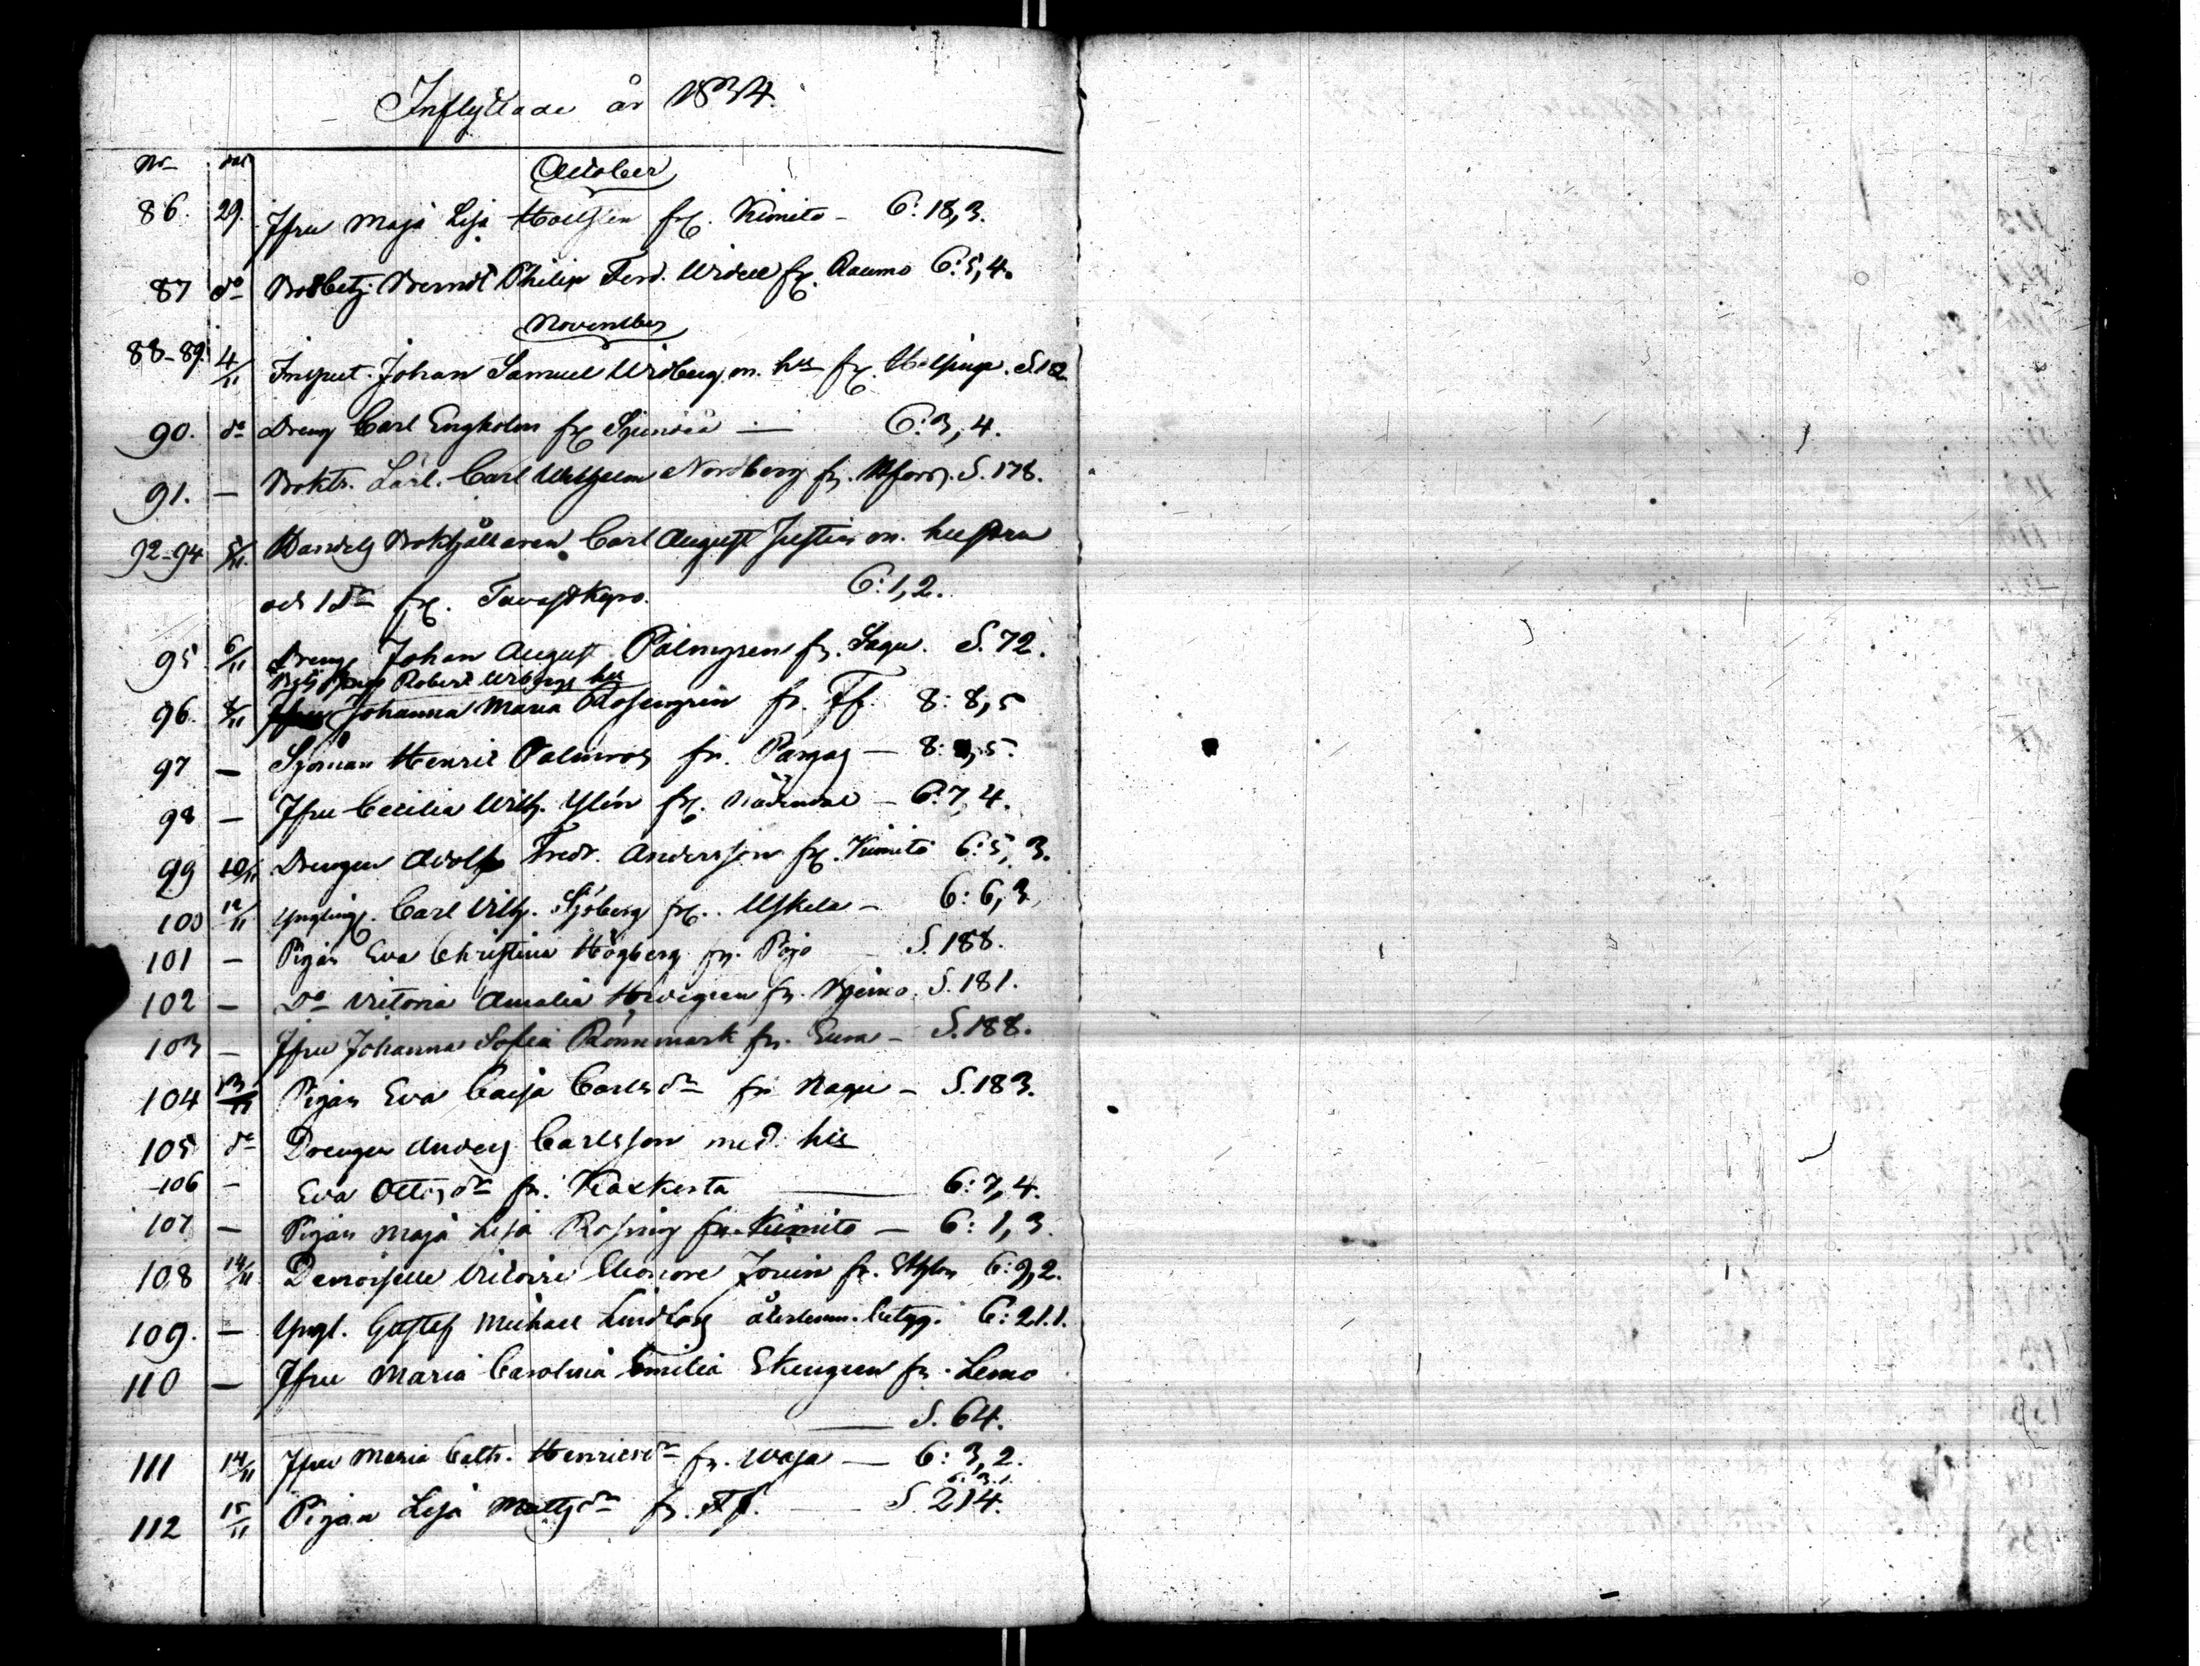 Inflyttade år 1834.
No dat
October
86. 29. Jfru Maja Lisa fr. Kimito - 6: 18, 3.
87 do Berndt Philip Ferd. Widell fr. Raumo 6: 5, 4.
November
88-89. 4/11 Inspect. Johan Samuel Widberg m. hu fr. Helsinge. S. 182
90. do Dreng Carl Engholm fr. Sjundeå — 6: 3, 4.
91. — Boktr. Lärl. Carl Wilhelm Nordberg fr. Hfors. S. 178.
92-94 5/11 Handels Bokhållaren Carl August Justin m. hustru
och 1 dr fr. Tavastkyro. 6: 1, 2.
95 6/11 Dreng Johan August Palmgren fr. Sagu. S. 72.
Robert Wibergs hu
96. 8/11 Johanna Maria Rosengren fr. Tf. 8: 8, 5
97 — Sjöman Henric Palmros fr. Pargas — 8: , 5.
98 — Jfru Cecilia Wilh. Ylén fr. Nådendal — 6: 7, 4.
99 10/11 Drengen Adolf Fredr. Andersson fr. Kimito 6: 5, 3.
100 12/11 Yngling. Carl Wilh. Sjöberg fr. Uskela — 6: 6, 3
101 — Pigan Eva Christina Högberg fr. Pojo — S. 188.
102 — Do Victoria Amalia Hedegren fr. S. 181.
103 — Jfru Johanna Sofia Rönnmark fr. Eura — S. 188.
104 13/11 Pigan Eva Caisa Carlsdr fr Nagu — S. 183.
105 do Drengen Anders Carlsson med hu
-106 — Eva Ottosdr fr. Kaskerta — 6: 7, 4.
107 — Pigan Maja Lisa Rosping fr. Kimito — 6: 1, 3.
108 14/11 Demoiselle Victoire Eleonore Jouin fr. 6: 9, 2.
109. — Yngl. Gustaf Michael Lindlag återlemn. betyg. 6: 21. 1.
110 — Jfru Maria Carolina Emilia Ekengren fr. Lemo
— S. 64.
111 14/11 Jfru Maria Cath. Henricsdr fr. — 6: 3, 2.
6: 3. 1.
112 15/11 Pigan Lisa Mattsdr fr. Tf. — S 214.